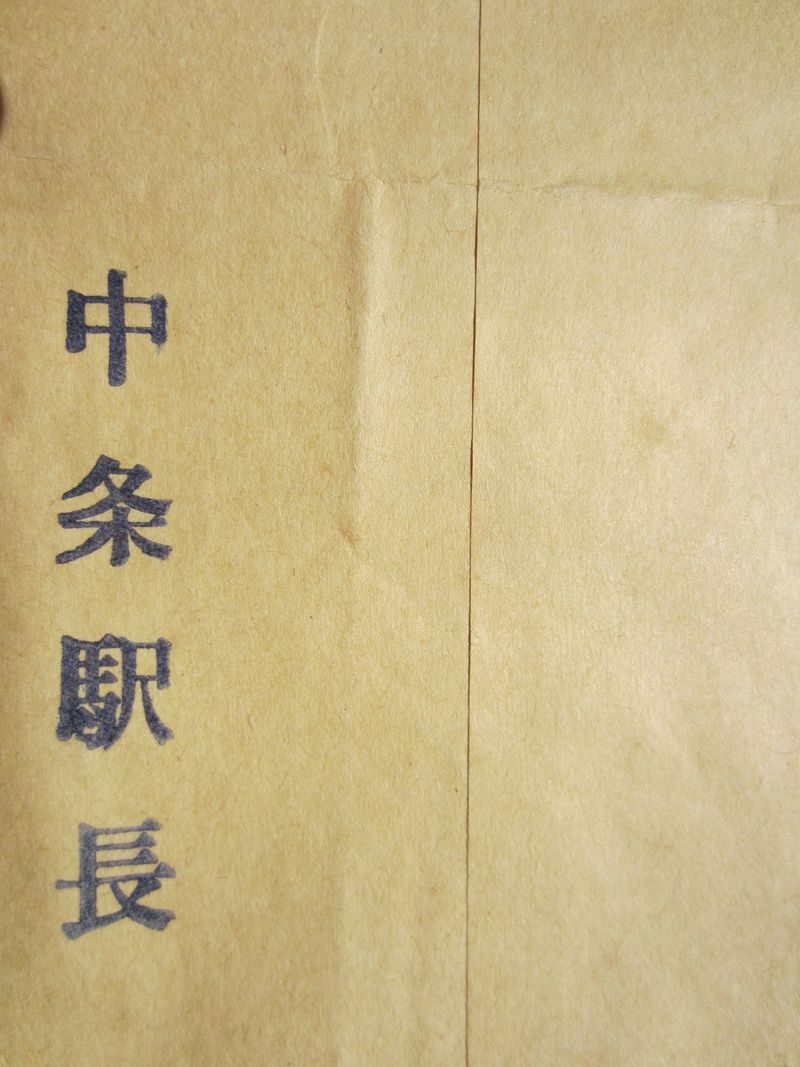 中条駅長